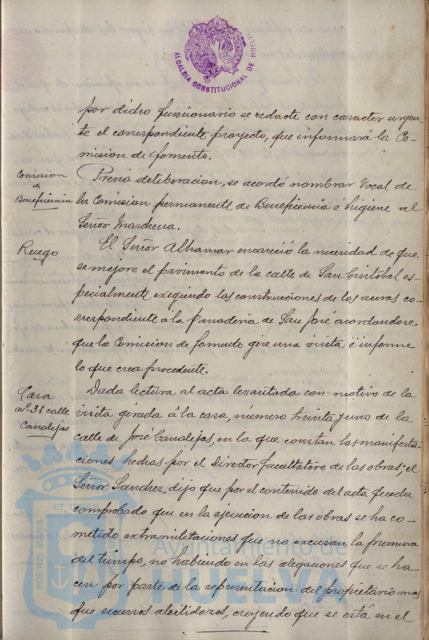 ALCALDIA CONSTITUCIONAL DE HUELVA
por dicho funcionario se redacte con caracter urgen-
te el correspondiente proyecto, que informará la Co-
mision de Fomento.
Comision
de
Beneficencia
Previa deliberacion, se acordó nombrar Vocal de
la Comision permanente de Beneficencia é higiene al
Señor Marchena.
Ruego
El Señor Alhamar encareció la necesidad de que
se mejore el pavimento de la calle de San Cristobal es-
pecialmente exigiendo las construcciones de las aceras co-
rrespondiente á la panaderia de San José acordandose
que la Comision de Fomento gire una visita é informe
lo que crea procedente.
Casa
nº 31 calle
Canalejas
Dada lectura al acta levantada con motivo de la
visita girada á la casa, número treinta y uno de la
calle de José Canalejas, en la que constan las manifesta-
ciones hechas por el Director facultativo de las obras; el
Señor Sanchez, dijo que por el contenido del acta queda
comprobado que en la ejecucion de las obras se ha co-
metido extramilitaciones que no excusan la premura
del tiempo, no habiendo en las alegaciones que se ha-
cen por parte de la representacion del propietario mas
que recursos dilatorios, creyendo que se está en el
PORTUS MARIS ET
Ayuntamiento de
HUELVA